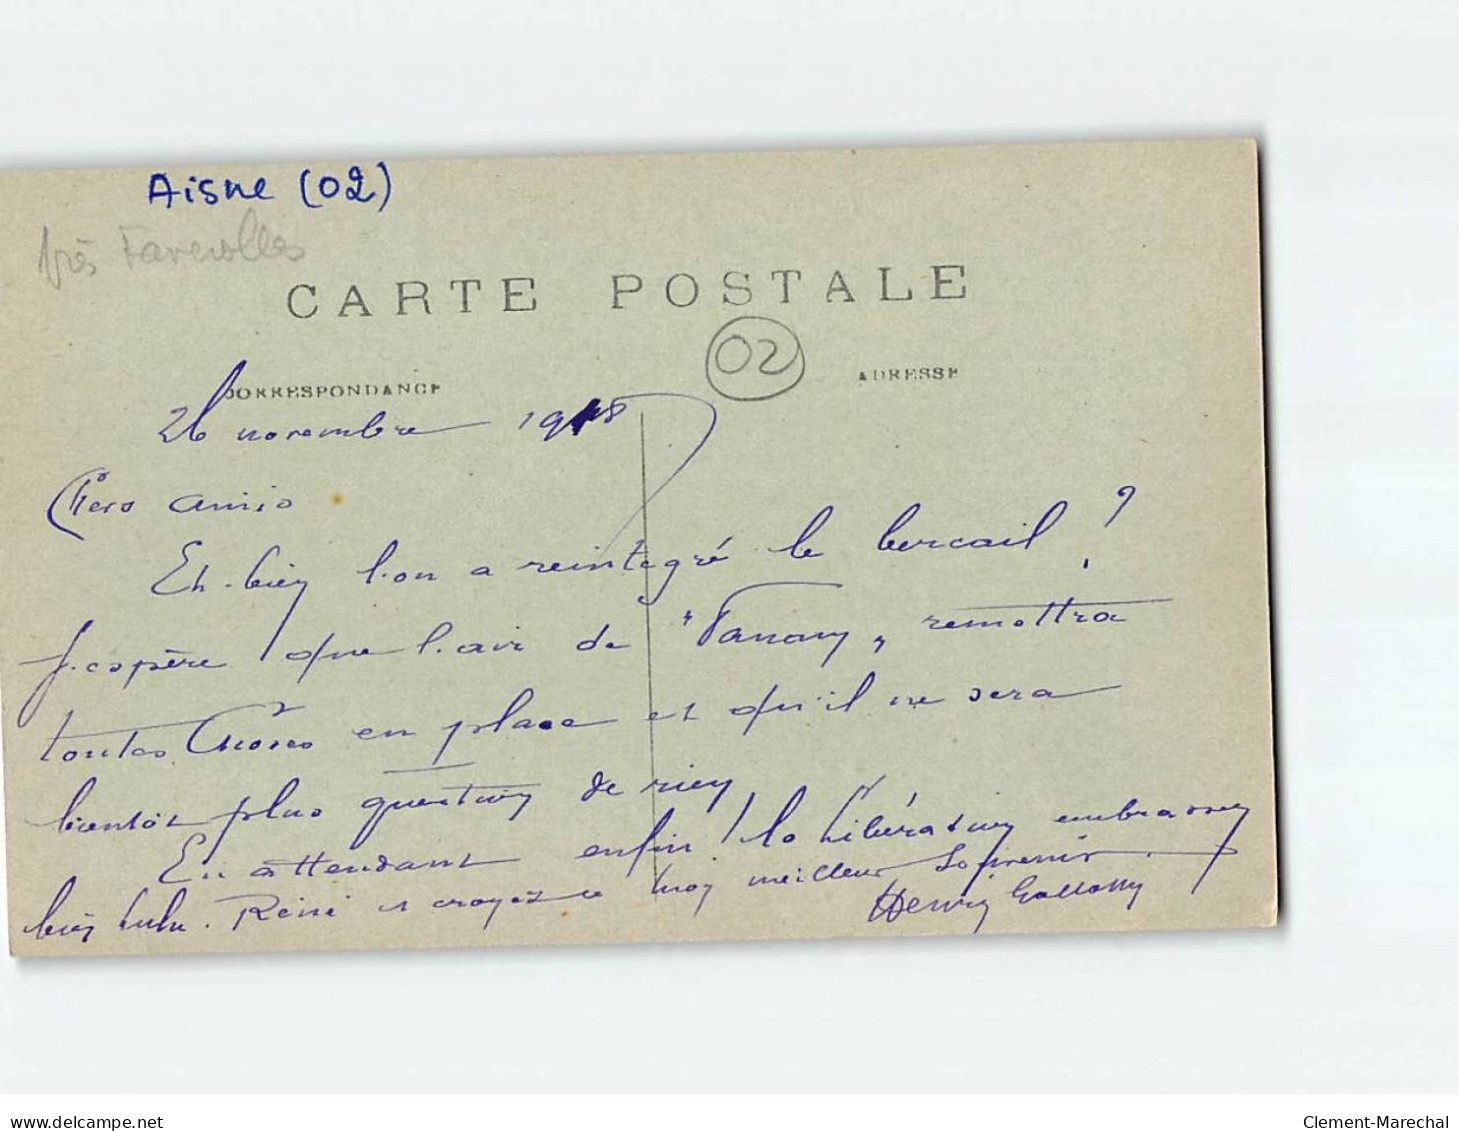 Aisne (02)
près Faverolles
CARTE POSTALE
02
CORRESPONDANCE
ADRESSE
26 novembre 1918
Chers amis
Eh-bien l'on a reintegré le bercail ?
J'espère que l'air de "Panam" remettra
toutes choses en place et qu'il ne sera
bientôt plus question de rien
En attendant enfin ! la Libération embrassez
bien Lulu. René et croyez à mon meilleur souvenir.
Henry
delcampe.net
Clement-Marechal